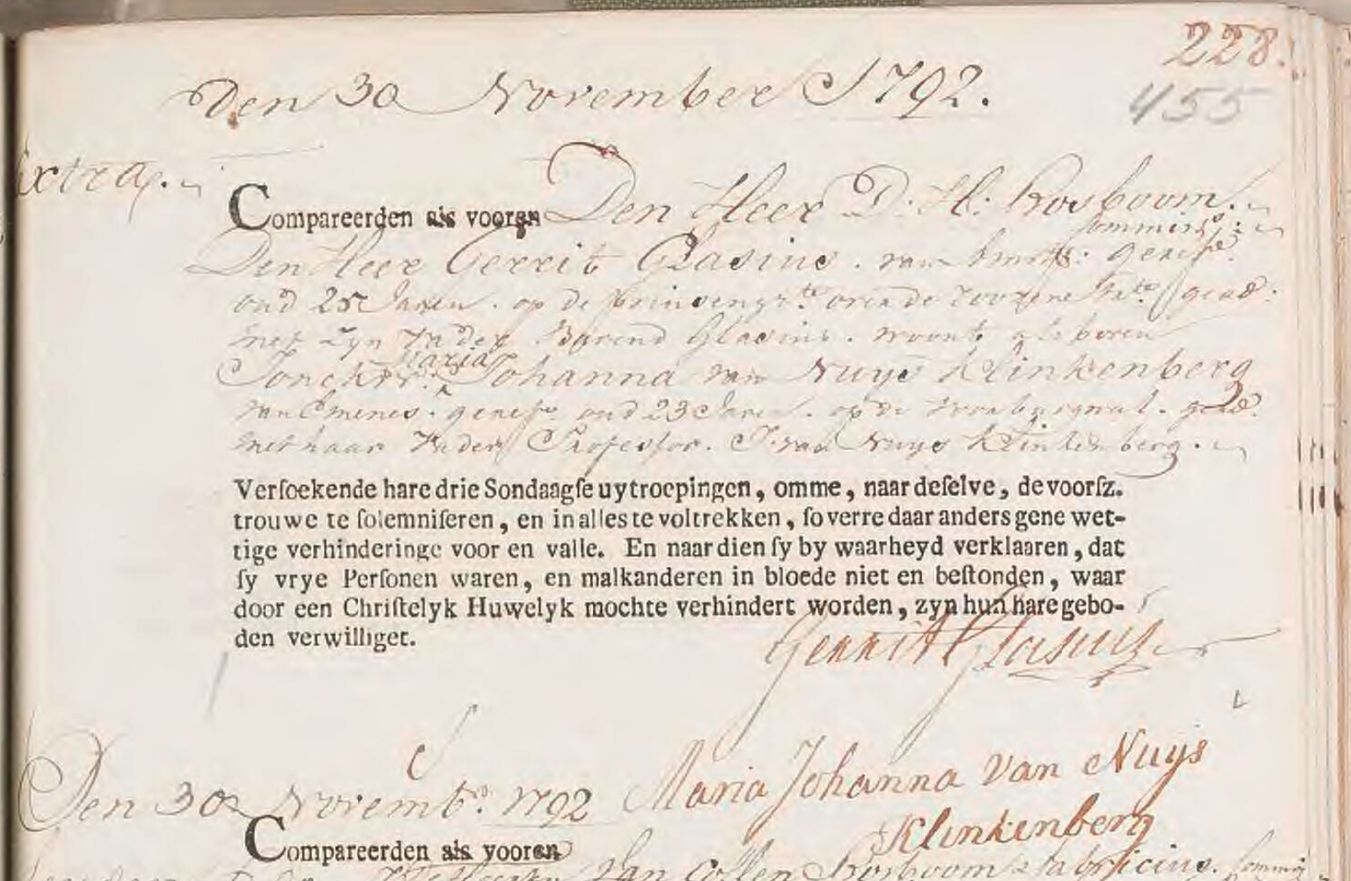 228.
Den 30 November 1792.
455
Extra.
Compareerden als vooren Den Heer D: H: Rosboom.
Commiss:
Den Heer Gerrit Glasius. van geref:
oud 25 Jaren. op de prinsengr: over de gead:
met zyn Vader Barend Glasius. woont
Maria
Jonckvr: Johanna van Nuys Klinkenberg
van Emenes. geref: oud 23 Jaren. op de gead:
met haar Vader Professor. J: van Nuys Klinkenberg.
Versoekende hare drie Sondaagse uytroepingen, omme, naar deselve, de voorsz.
trouwe te solemniseren, en in alles te voltrekken, so verre daar anders gene wet-
tige verhinderinge voor en valle. En naardien sy by waarheyd verklaaren, dat
sy vrye Personen waren, en malkanderen in bloede niet en bestonden, waar
door een Christelyk Huwelyk mochte verhindert worden, zyn hun hare gebo-
den verwilliget.
Gerrit Glasius
Maria Johanna van Nuys
Klinkenberg
Den 30 Novemb: 1792
Compareerden als vooren
van Collen Rosboom & Fabricius. Commis